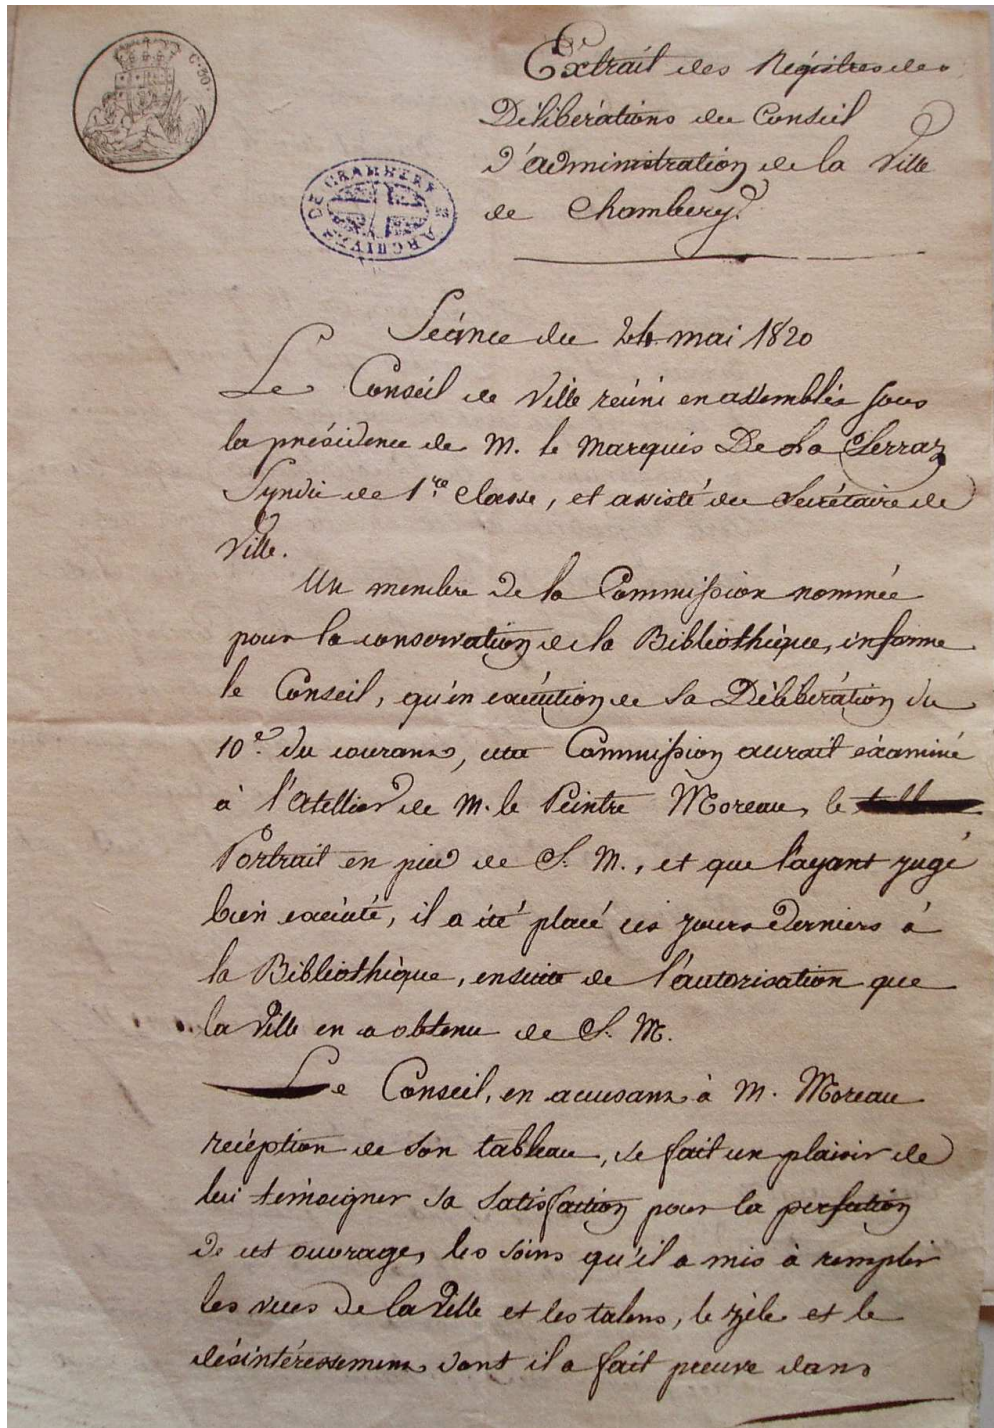 C. 80.
ARCHIVES DE CHAMBERY
Extrait des Régistres des
Délibérations du Conseil
d'administration de la Ville
de Chambery.
Séance du 24 mai 1820
Le Conseil de Ville réuni en assemblée sous
la présidence de M. le Marquis De La Serraz
Syndic de 1.re classe, et assisté du Secrétaire de
Ville.
Un membre de la Commission nommée
pour la conservation de la Bibliothèque, informe
le Conseil, qu'en exécution de sa Délibération du
10e. du courant, cette Commission aurait éxaminé
à l'Attellier de M. le Peintre Moreau, le
Portrait en pied de S. M., et que l'ayant jugé
bien exécuté, il a été placé ces jours derniers à
la Bibliothèque, ensuite de l'autorisation que
la Ville en a obtenu de S. M.
Le Conseil, en accusant à M. Moreau
réception de son tableau, se fait un plaisir de
lui témoigner sa satisfaction pour la perfection
de cet ouvrage, les soins qu'il a mis à remplir
les vues de la Ville et les talens, le zèle et le
désintéressement dont il a fait preuve dans